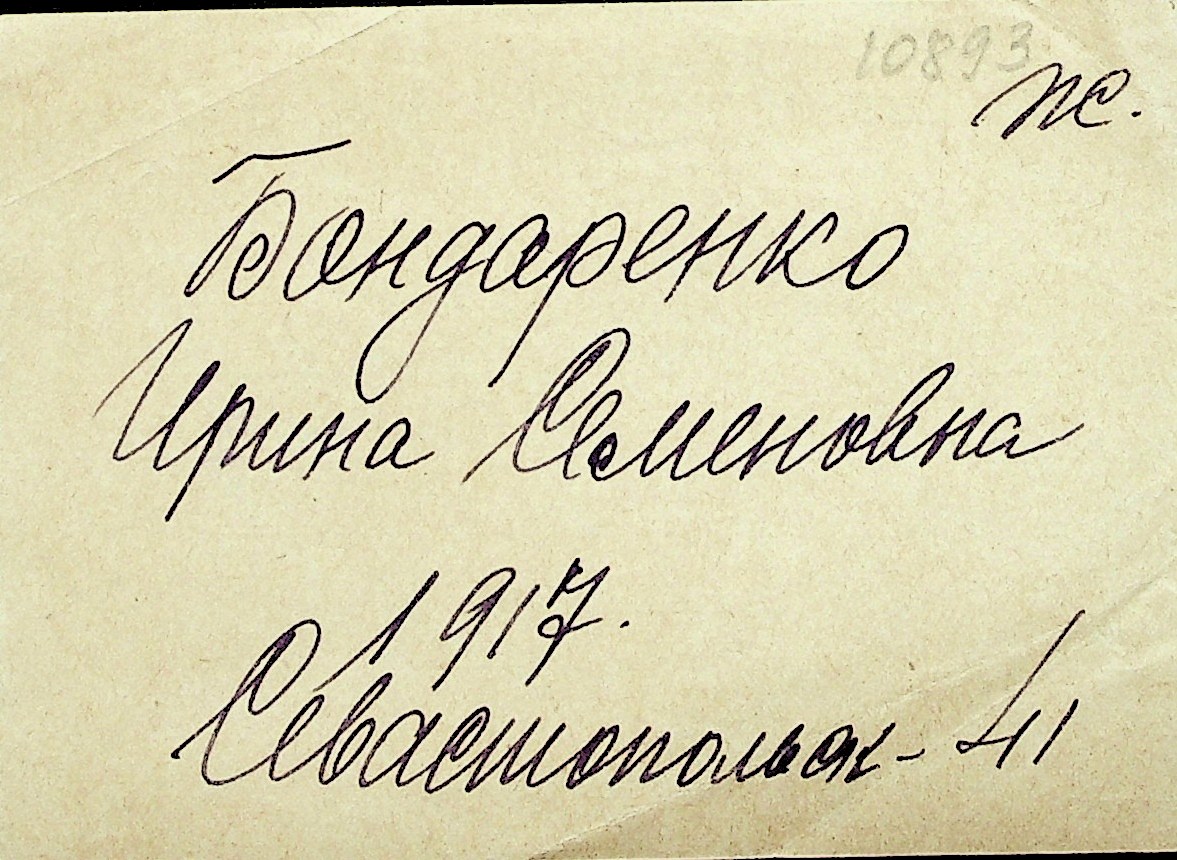 10893
ж.
Бондаренко
Ирина Семеновна
1917.
Севастопольск-41